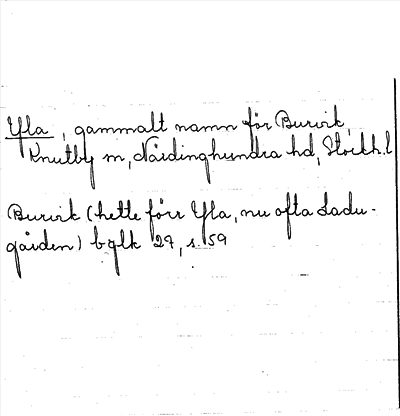 Yla, gammalt namn för Burvik,
Knutby sn, Närdinghundra hd, Stockh. l
Burvik (hette förr Yla, nu ofta Ladu-
gården) bglk 29, s. 59